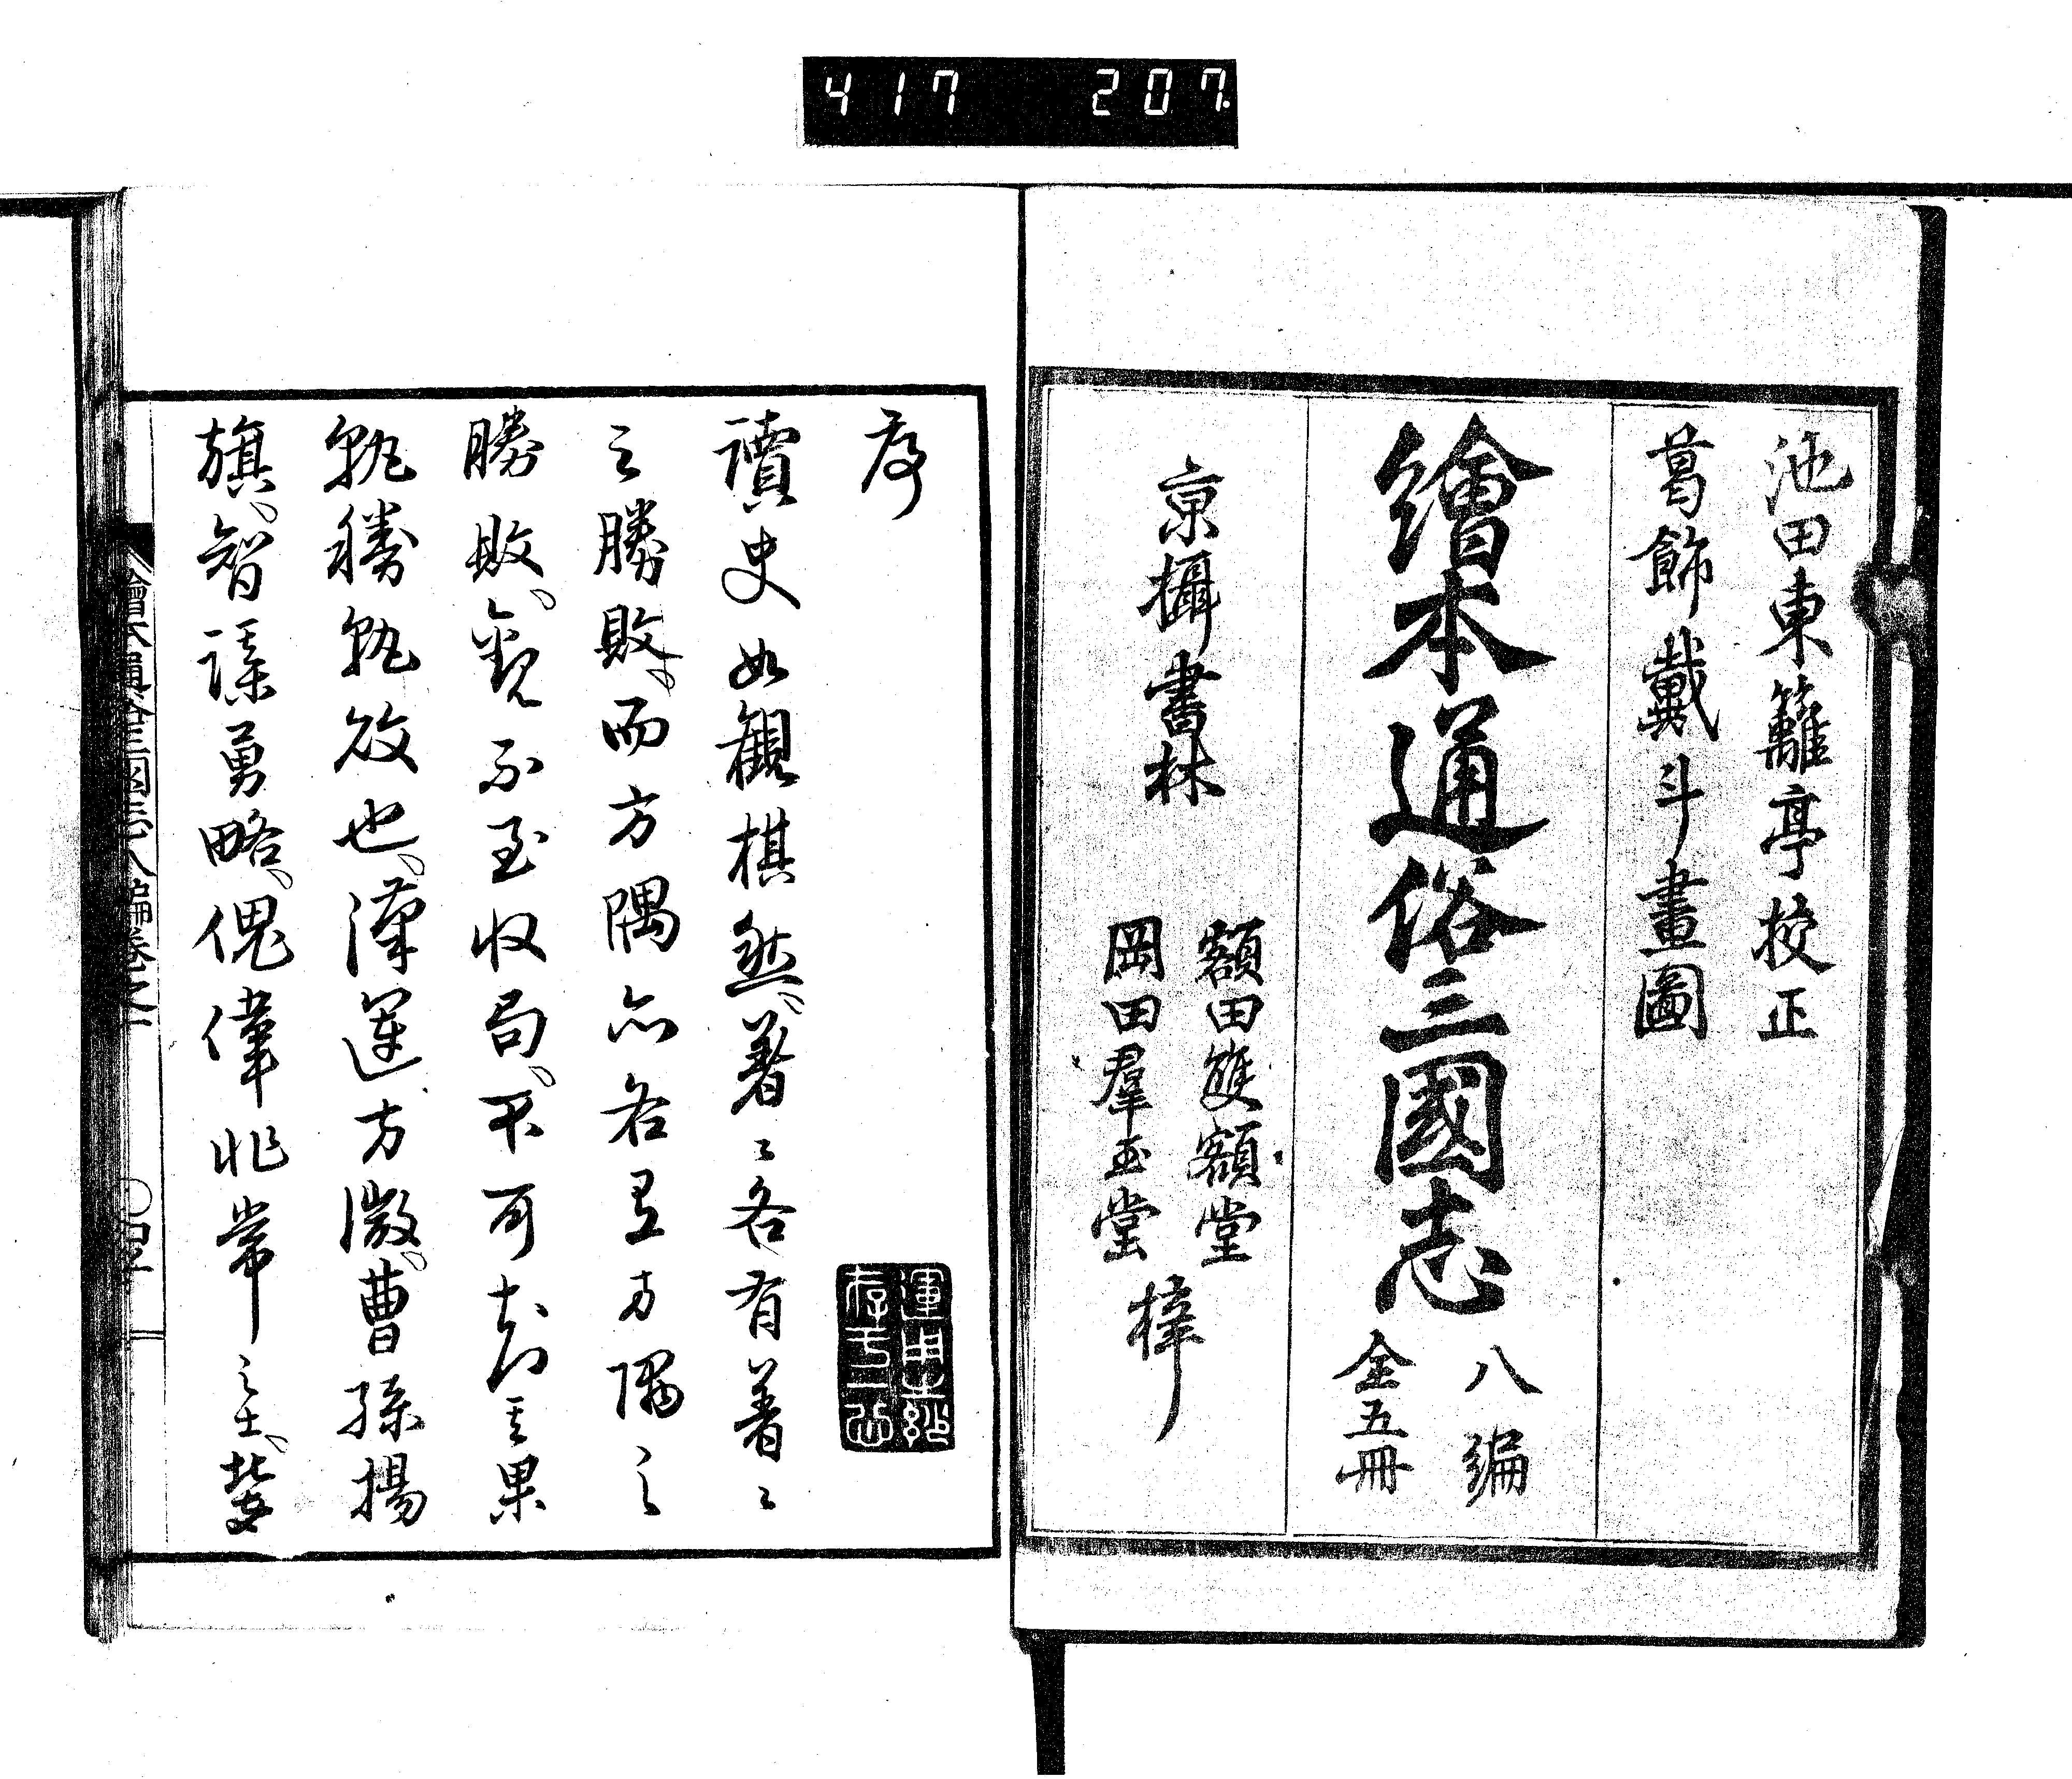 417 207.
池田東籬亭校正
葛飾戴斗畫圖
繪本通俗三國志
八編
全五冊
京攝書林
額田雙額堂
岡田羣玉堂
梓
序
運用之妙
存乎一心
讀史如觀棋然著〻各有著〻
之勝敗而方隅亦各有方隅之
勝敗觀不至收局不可知其果
孰勝孰敗也漢運方微曹孫揚
旗智謀勇略傀偉非常之士
繪本通俗三國志八編卷之